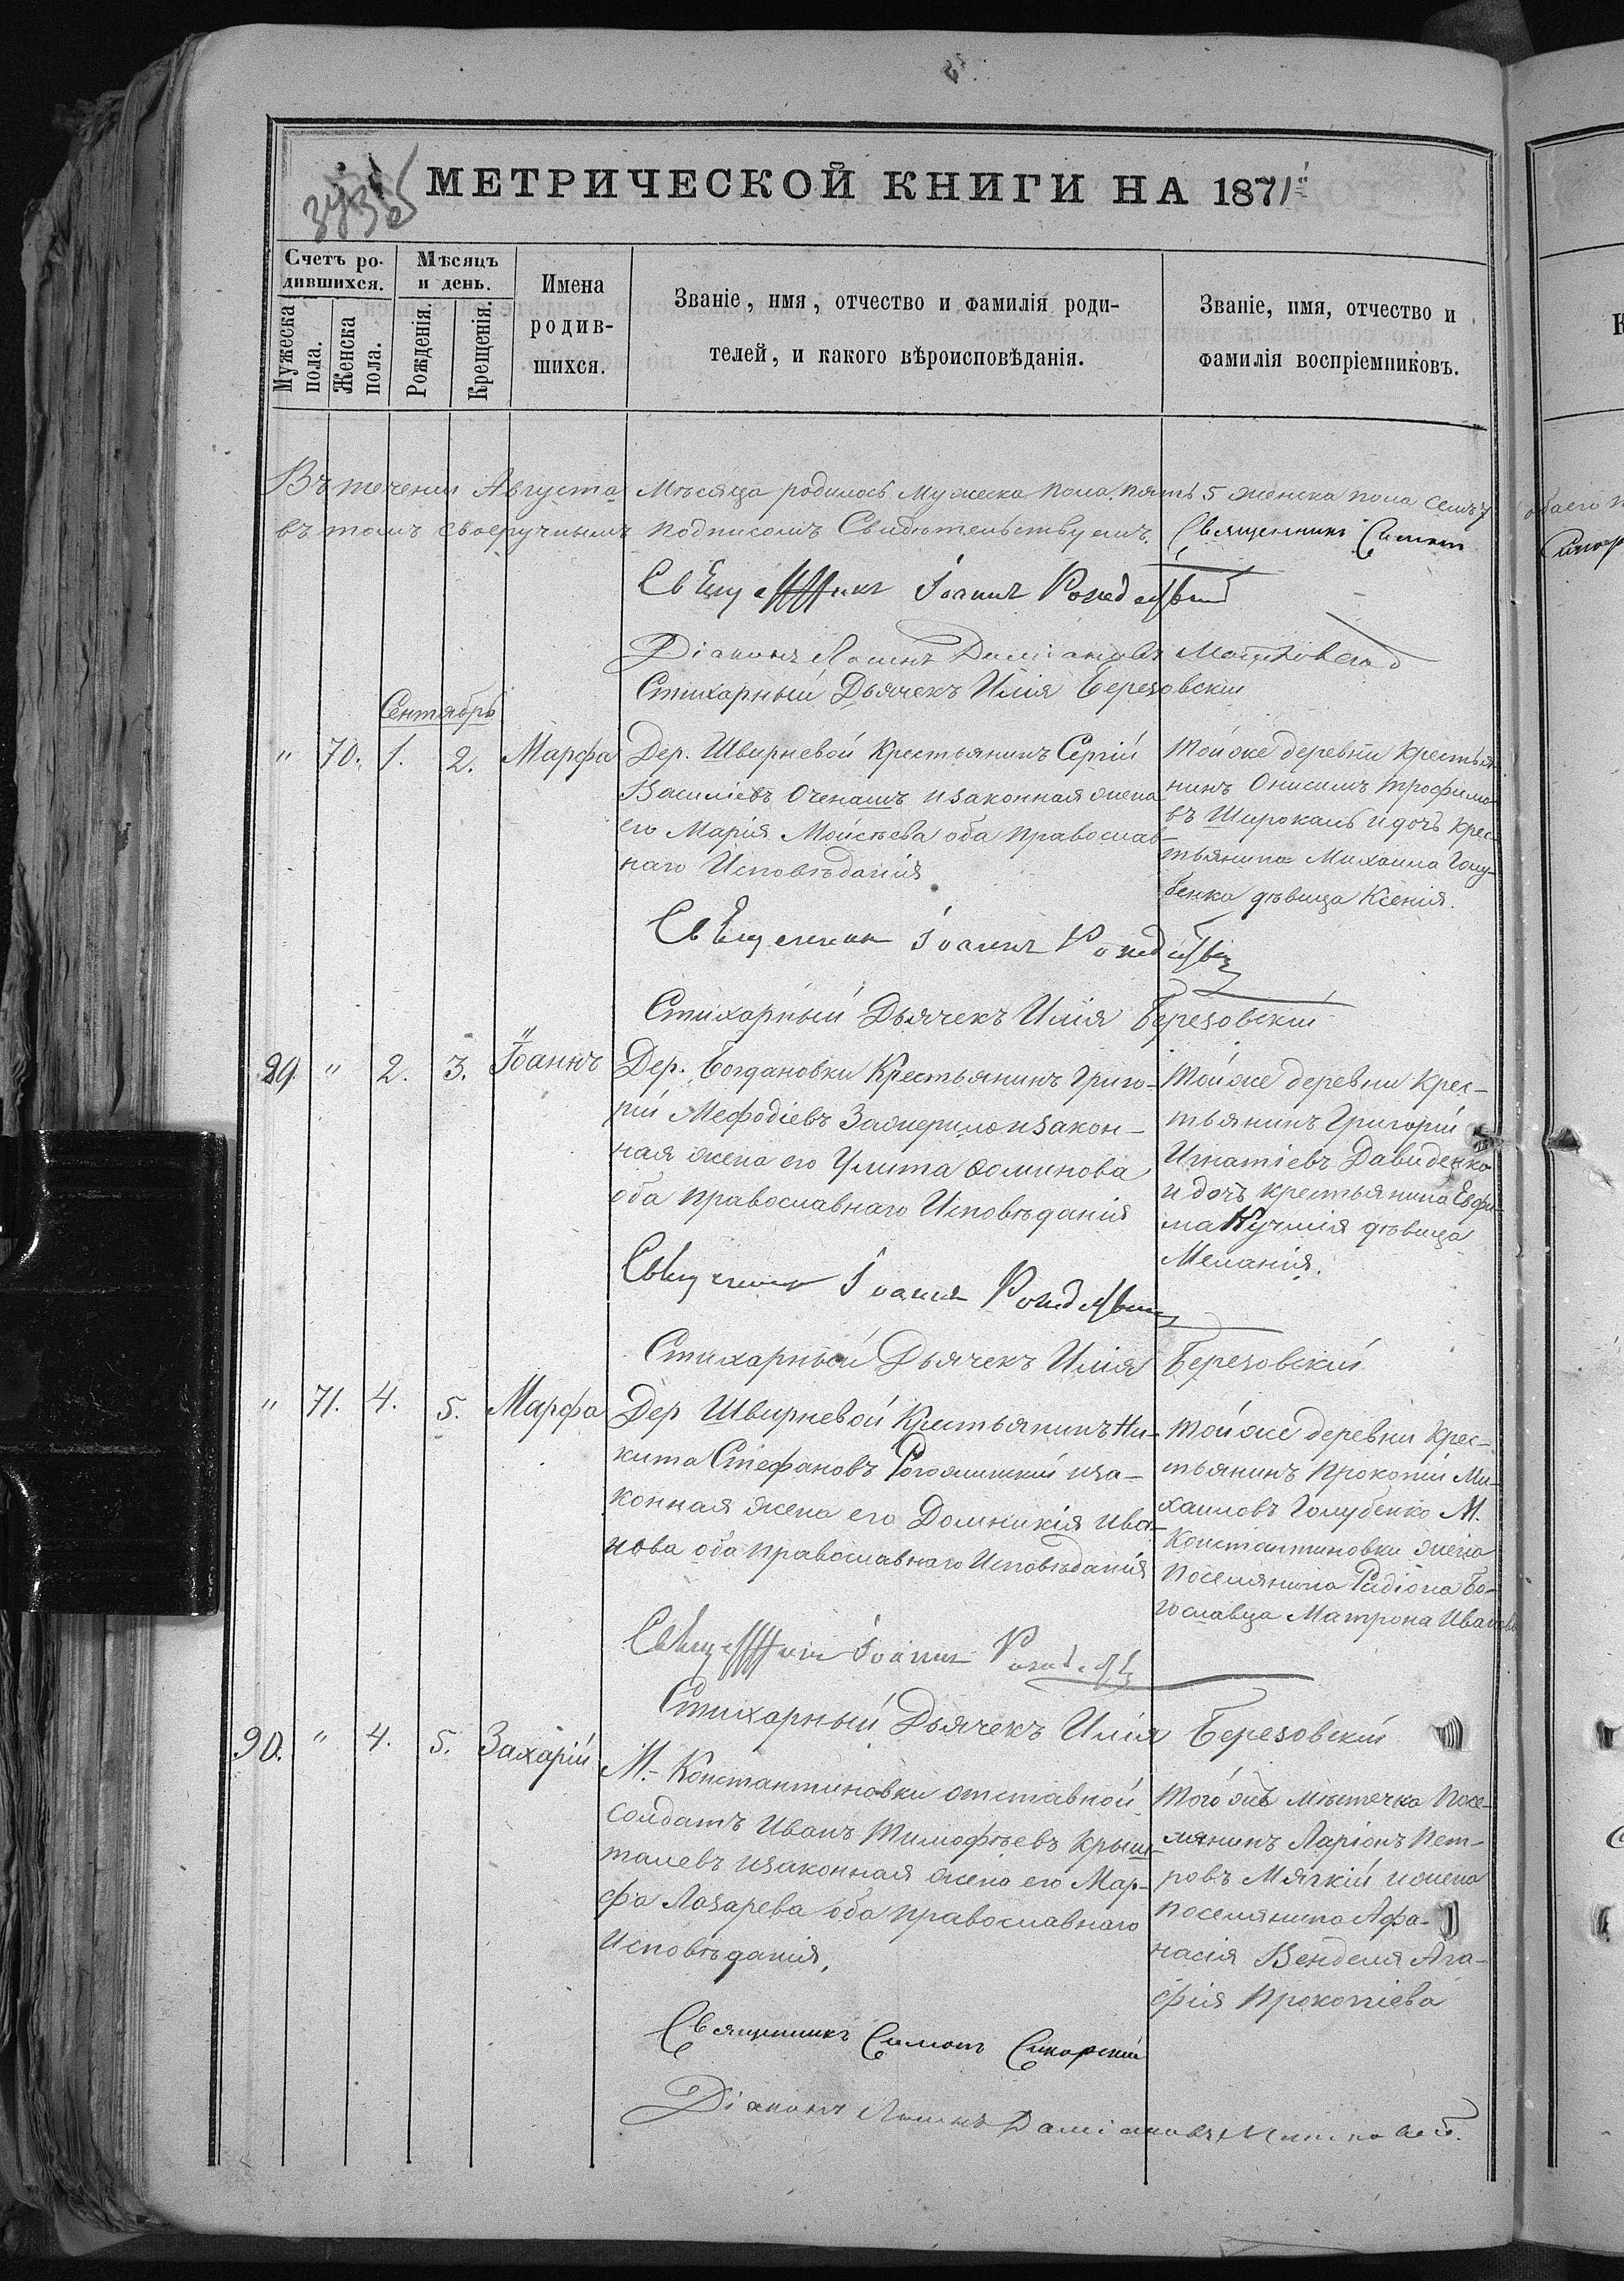 МЕТРИЧЕСКОЙ КНИГИ НА 1871
Счетъ ро-
дившихся.
Мужеска пола.
Женска пола.
Мѣсяцъ
и день.
Рожденія.
Крещенія.
Имена
родив-
шихся.
Званіе, имя, отчество и фамилія роди-
телей, и какого вѣроисповѣданія.
Званіе, имя, отчество и
фамилія воспріемниковъ.
Въ течении Августа Мѣсяца родилось Мужеска пола пять 5 женска пола семъ 7
въ томъ своеручнымъ подписомъ Свидѣтельствуемъ. Священникъ Симонъ
Священникъ Іоаннъ
Діаконъ Даміановъ
Стихарный Дьячекъ Илія Березовскій
Сентябрь
" 70. 1. 2. Марфа
Дер. Швирневой Крестьянинъ Сергій
Василіевъ Оченашъ и законная жена
его Марія Мойсѣева оба православ-
наго Исповѣданія
Той же деревни крестья-
нинъ Онисимъ Трофимо-
въ Широкань и дочь крес-
тьянина Михаила Голу-
бенка дѣвица Ксенія.
Священник Іоаннъ
Стихарный Дьячекъ Илія Березовскій
89. " 2. 3. Іоаннъ
Дер. Богдановки Крестьянинъ Григо-
рій Мефодіевъ и закон-
ная жена его Улита Ѳоминова
оба православнаго Исповѣданія
Той же деревни Крес-
тьянинъ Григорій
Игнатіевъ Давиденко
и дочъ крестьянина Евфи-
ма Кучмія дѣвица
Меланія.
Священник Іоаннъ
Стихарный Дьячекъ Илія Березовскій
" 71. 4. 5. Марфа
Дер Швирневой Крестьянинъ Ни-
кита Стефановъ и за-
конная жена его Домникія Ива-
нова оба православнаго Исповѣданія
Той же деревни Крес-
тьянинъ Прокопій Ми-
хаиловъ Голубенко М.
Константиновки жена
поселянина Радіона Бо-
гославца Матрона Иванова
Священник Іоаннъ
Стихарный Дьячекъ Илія Березовскій
90. " 4. 5. Захарій
М. Константиновки отставной
солдатъ Иванъ Тимофѣевъ Крыш-
талевъ и законная жена его Мар-
фа Лазарева оба православнаго
Исповѣданія.
Того жъ мѣстечка Посе-
лянинъ Ларіонъ Пет-
ровъ Мягкій и жена
поселянина Афа-
насія Венделя Ага-
фія Прокопіева
Священникъ Симонъ Сикорскій
Діаконъ Даміановъ